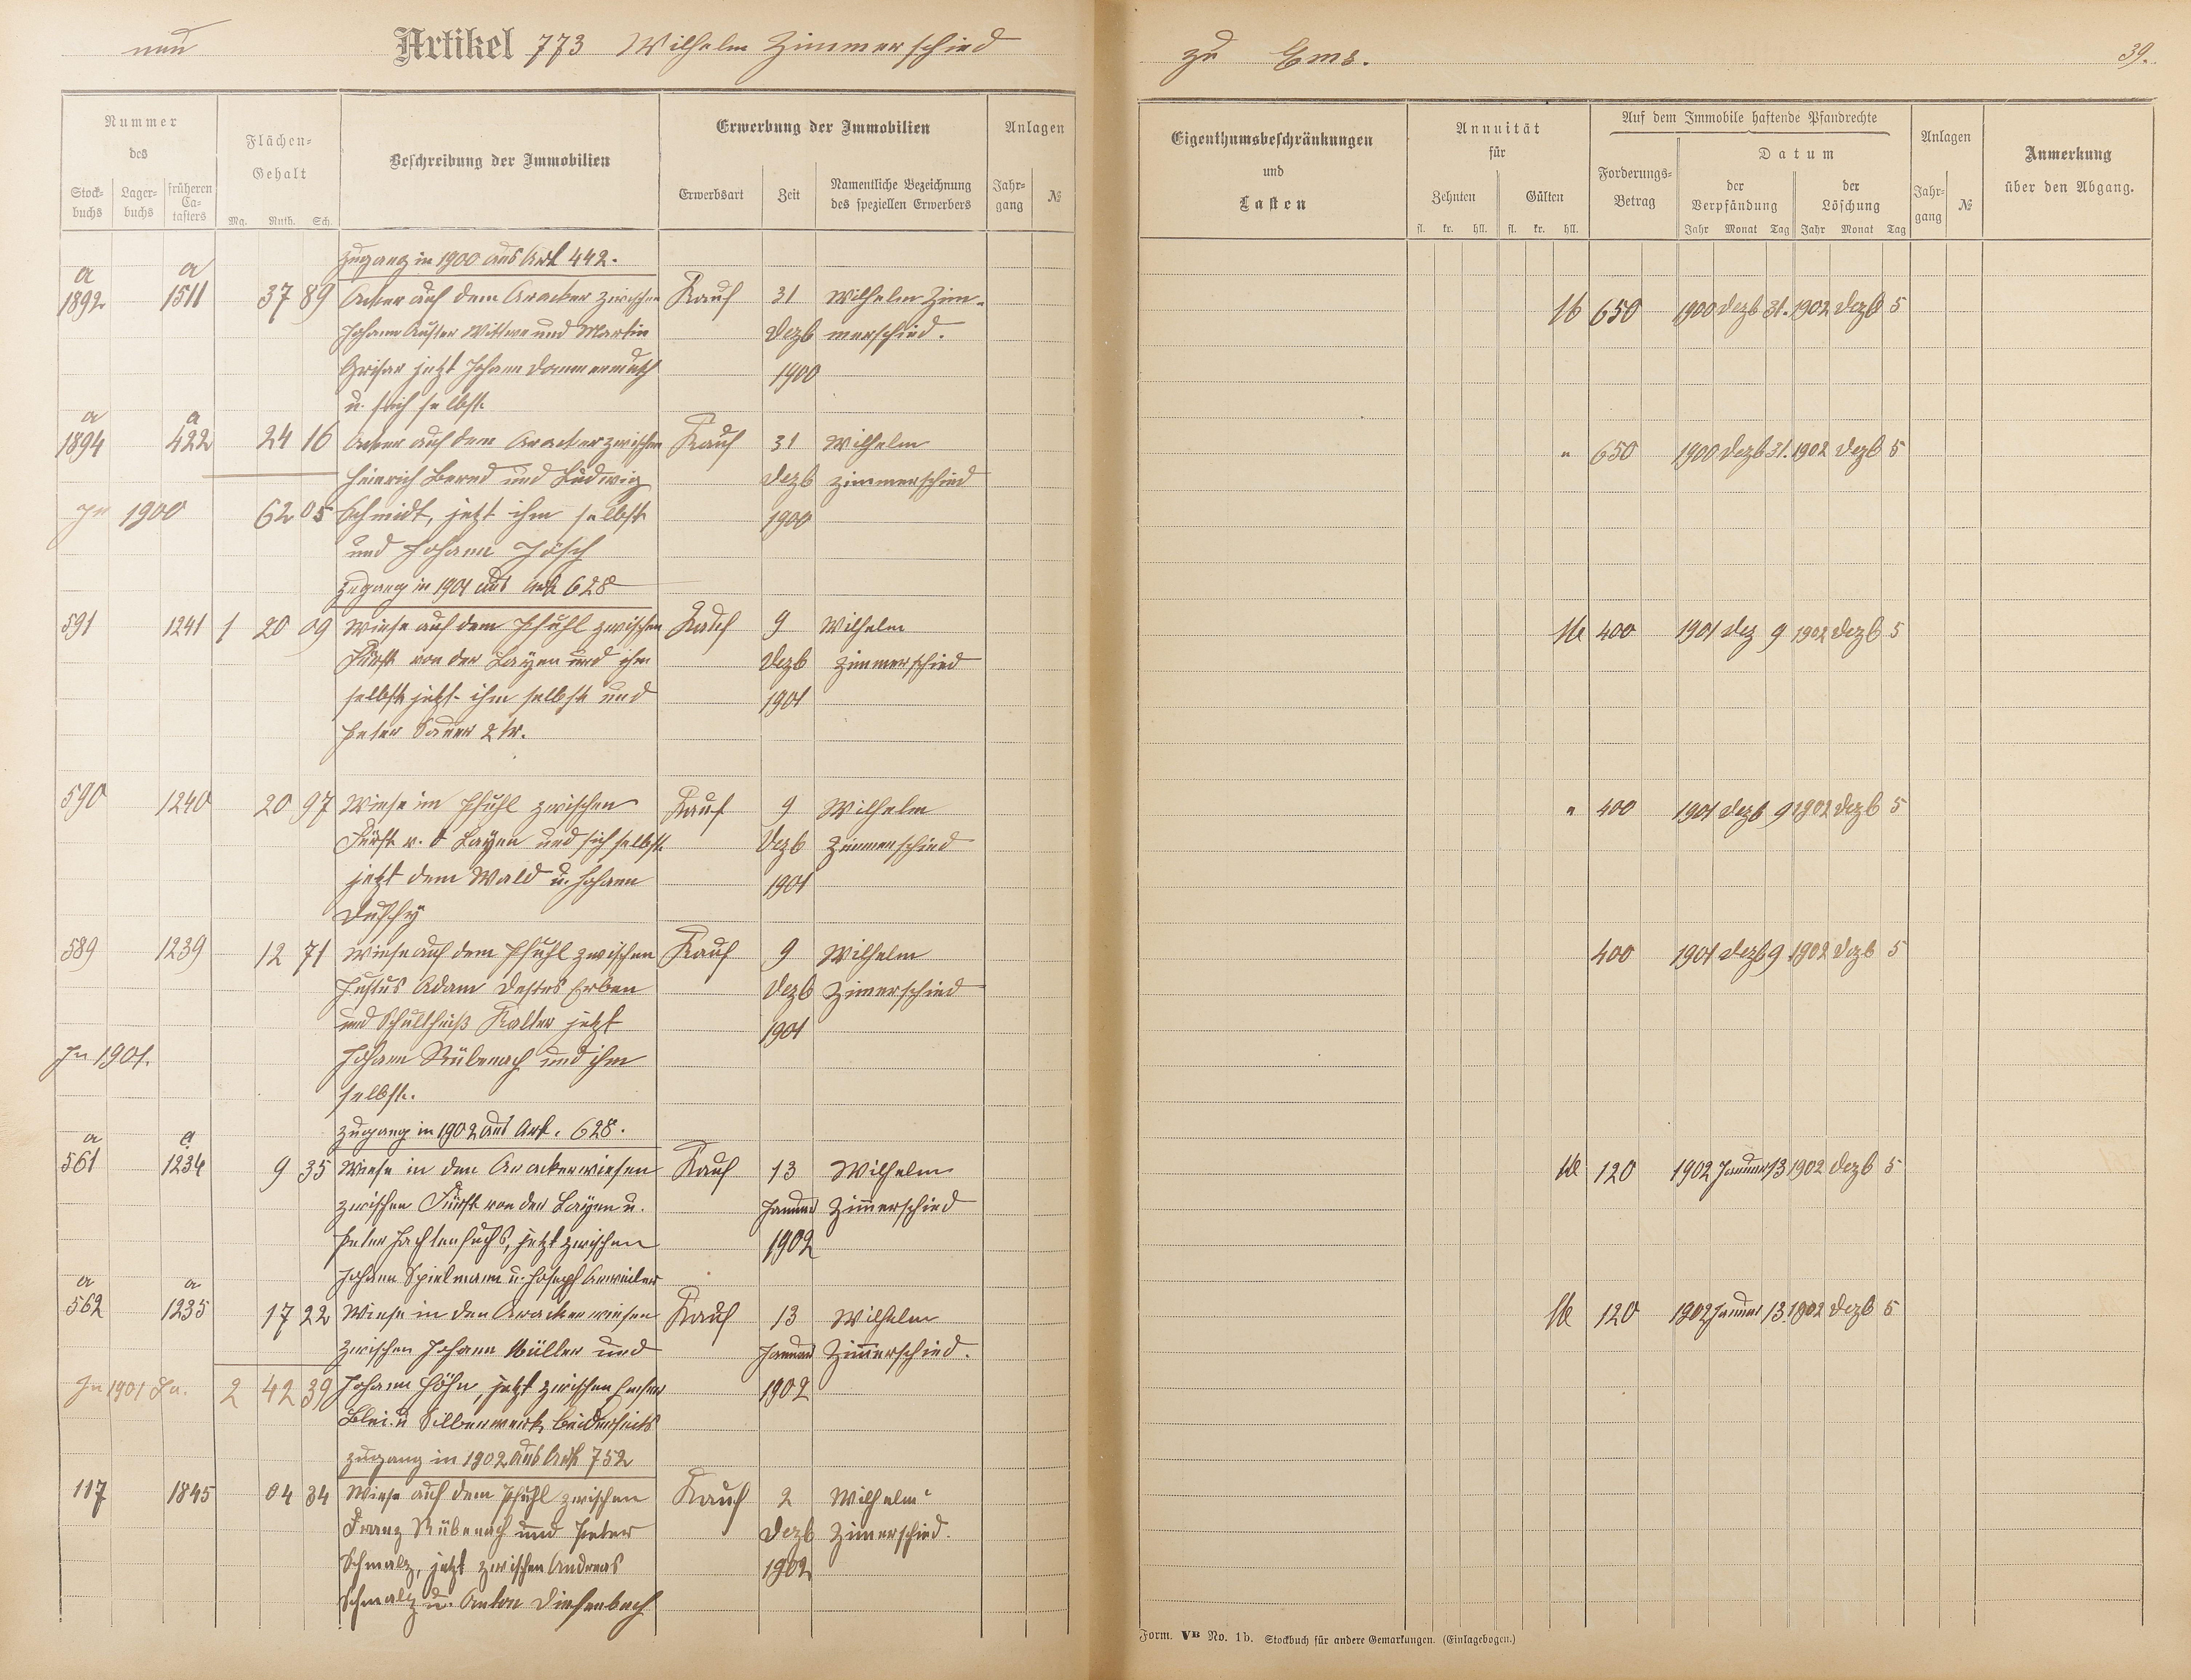 neu Artikel 773 Wilhelm Zimmerschied
zu Ems. 39.
Nummer des
Stock-buchs Lager-buchs früheren Ca-tasters
Flächen-Gehalt
Mg. Ruth. Sch.
Beschreibung der Immobilien
Erwerbung der Immobilien
Erwerbsart Zeit Namentliche Bezeichnung des speziellen Erwerbers
Anlagen
Jahr-gang №
Eigenthumsbeschränkungen und Lasten
Annuität für
Zehnten Gülten
fl. kr. hll. fl. kr. hll.
Auf dem Immobile haftende Pfandrechte
Forderungs-Betrag
Datum
der Verpfändung der Löschung
Jahr Monat Tag Jahr Monat Tag
Anlagen
Jahr-gang №
Anmerkung über den Abgang.
Zugang in 1900 aus Art 442.
a a
1892 1511 37 89 Acker auf dem Aracker zwischen Kauf 31 Wilhelm Zim- 650 1900 Dezb 31. 1902 Dezb 5
Johann Wittwe und Martin Dezb merschied.
jetzt Johann 1900
u. sich selbst
a a
1894 422 24 16 Acker auf dem Aracker zwischen Kauf 31 Wilhelm " 650 1900 Dezb 31. 1902 Dezb 5
Heinrich Bernd und Ludwig Dezb Zimmerschied
In 1900 62 05 Schmidt, jetzt ihm selbst 1900
und Johann Jösch
Zugang in 1901 aus Art 628
591 1241 1 20 09 Wiese auf dem Pfuhl zwischen Kauf 9 Wilhelm 400 1901 Dez 9 1902 Dezb 5
Fürst von der Layen und ihm Dezb Zimmerschied
selbst jetzt ihm selbst und 1901
Peter Sauer 2 tr.
590 1240 20 97 Wiese im Pfuhl zwischen Kauf 9 Wilhelm " 400 1901 Dezb 9 1902 Dezb 5
Fürst v. d Layen und sich selbst Dezb Zimmerschied
jetzt dem Wald u. Johann 1901
589 1239 12 71 Wiese auf dem Pfuhl zwischen Kauf 9 Wilhelm 400 1901 Dezb 9 1902 Dezb 5
Justus Adam Erben Dezb Zimerschied
und Schultheiß jetzt 1901
In 1901. Johann Rübenach und ihm
selbst.
Zugang in 1902 aus Art. 628.
a a
561 1234 9 35 Wiese in den Arackerwiesen Kauf 13 Wilhelm 120 1902 Januar 13 1902 Dezb 5
zwischen Fürst von der Layen u. Januar Zimerschied
Peter jetzt zwischen 1902
Johann Spielmann u. Joseph Arweiler
a a
562 1235 17 22 Wiese in den Arackerwiesen Kauf 13 Wilhelm 120 1902 Januar 13. 1902 Dezb 5
zwischen Johann Müller und Januar Zimerschied.
In 1901 2 42 39 Johann Höhn, jetzt zwischen Emser 1902
Blei u Silberwerk beiderseits
Zugang in 1902 aus Art 752
117 1845 04 34 Wiese auf dem Pfuhl zwischen Kauf 2 Wilhelm
Franz Rübenach und Peter Dezb Zimerschied.
Schmalz, jetzt zwischen Andreas 1902
Schmalz u. Anton Diefenbach
Form. VB No. 1b. Stockbuch für andere Gemarkungen. (Einlagebogen.)